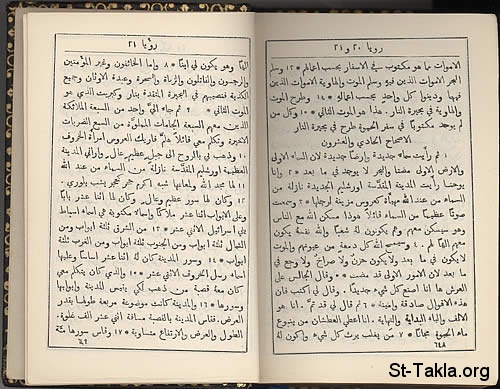 رويا ٢٠ و٢١
الاموات مما هو مكتوب في الاسفار بحسب اعمالهم * ١٣ وسلم
البحر الاموات الذين فيه وسلم الموت والهاوية الاموات الذين
فيهما ودينوا كل واحدٍ بحسب اعماله * ١٤ وطرح الموت
والهاوية في بحيرة النار. هذا هو الموت الثاني * ١٥ وكل من
لم يوجد مكتوبًا في سفر الحيوة طرح في بحيرة النار
الاصحاح الحادي والعشرون
١ ثم رأيت سماء جديدة وارضًا جديدة لان السماء الاولى
والارض الاولى مضتا والبحر لا يوجد في ما بعد * ٢ وانا
يوحنا رأيت المدينة المقدسة اورشليم الجديدة نازلة
من السماء من عند الله مهيأة كعروس مزينة لرجلها * ٣ وسمعت
صوتًا عظيمًا من السماء قائلاً هوذا مسكن الله مع الناس
وهو سيسكن معهم وهم يكونون له شعبًا والله نفسه يكون
معهم الهًا لهم * ٤ وسيمسح الله كل دمعة من عيونهم والموت
لا يكون في ما بعد ولا يكون حزن ولا صراخ ولا وجع في
ما بعد لان الامور الاولى قد مضت * ٥ وقال الجالس على
العرش ها انا اصنع كل شيء جديدًا. وقال لي اكتب فان
هذه الاقوال صادقة وامينة * ٦ ثم قال لي قد تم. انا هو
الالف والياء البداية والنهاية. انا اعطي العطشان من ينبوع
ماء الحيوة مجانًا * ٧ من يغلب يرث كل شيء واكون له
٦٤٨
رؤيا ٢١
الهًا وهو يكون لي ابنًا * ٨ واما الخائفون وغير المؤمنين
والرجسون والقاتلون والزناة والسحرة وعبدة الاوثان وجميع
الكذبة فنصيبهم في البحيرة المتقدة بنار وكبريت الذي هو
الموت الثاني * ٩ ثم جاء اليّ واحد من السبعة الملائكة
الذين معهم السبعة الجامات المملوّة من السبع الضربات
الاخيرة وتكلم معي قائلاً هلم فاريك العروس امرأة الخروف
١٠ وذهب بي بالروح الى جبل عظيم عالٍ واراني المدينة
العظيمة اورشليم المقدسة نازلة من السماء من عند الله
١١ لها مجد الله ولمعانها شبه اكرم حجر كحجر يشب بلوري *
١٢ وكان لها سور عظيم وعالٍ وكان لها اثنا عشر بابًا
وعلى الابواب اثنا عشر ملاكًا واسماء مكتوبة هي اسماء اسباط
بني اسرائيل الاثني عشر * ١٣ من الشرق ثلثة ابواب ومن
الشمال ثلثة ابواب ومن الجنوب ثلثة ابواب ومن الغرب ثلثة
ابواب * ١٤ وسور المدينة كان له اثنا عشر اساسًا وعليها
اسماء رسل الخروف الاثني عشر * ١٥ والذي كان يتكلم معي
كان معه قصبة من ذهب لكي يقيس المدينة وابوابها
وسورها * ١٦ والمدينة كانت موضوعة مربعة طولها بقدر
العرض. فقاس المدينة بالقصبة مسافة اثني عشر الف غلوة.
الطول والعرض والارتفاع متساوية * ١٧ وقاس سورها مئة
St-Takla.org